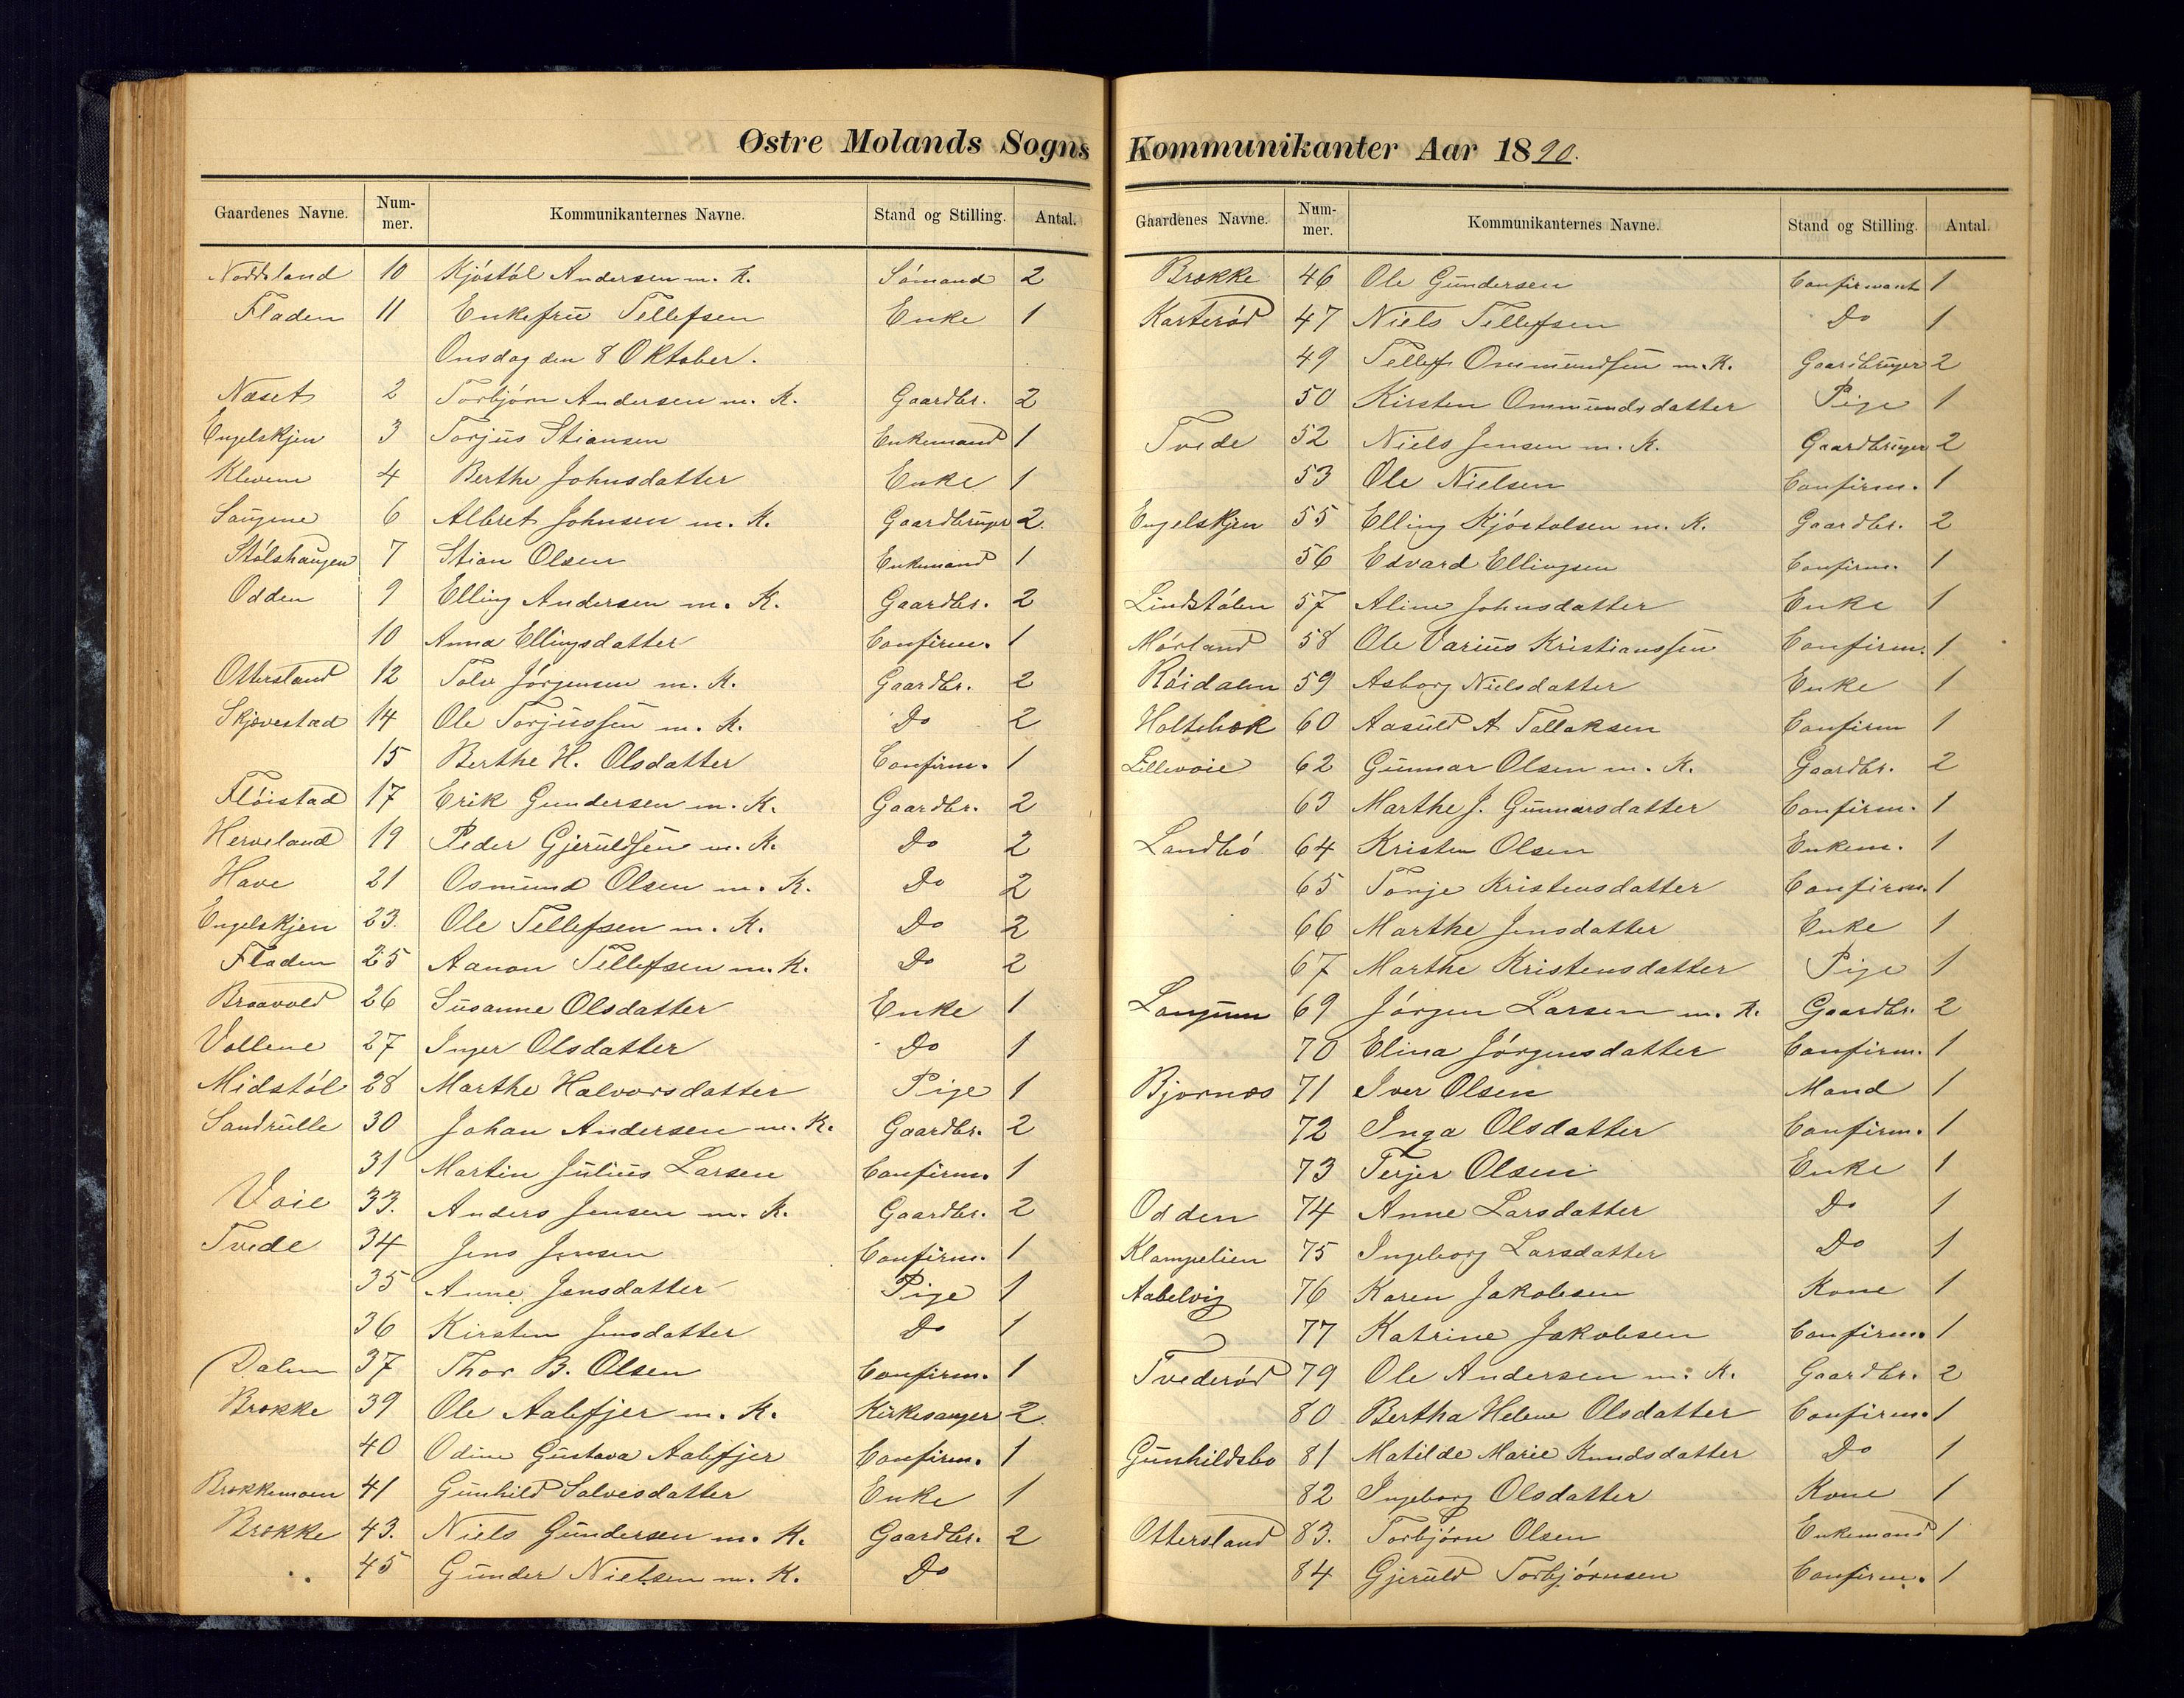 Østre Molands Sogns
Gaardenes Navne. Num-mer. Kommunikanternes Navne. Stand og Stilling. Antal.
Noddeland 10 Kjöstöl Andersen m. K. Sömand 2
Fladen 11 Enkefru Tellefsen Enke 1
Onsdag den 8 Oktober.
Næset 2 Torbjörn Andersen m. K. Gaardbr. 2
Engelskjen 3 Torjus Stiansen Enkemand 1
Klevene 4 Berthe Johnsdatter Enke 1
Saugene 6 Albret Johnsen m. K. Gaardbruger 2.
Stölshaugen 7 Stian Olsen Enkemand 1
Odden 9 Elling Andersen m. K. Gaardbr. 2
10 Anna Ellingsdatter Confirm. 1
Ottersland 12 Tolv Jörgensen m. K. Gaardbr. 2
Skjævestad 14 Ole Torjussen m. K. Do 2
15 Berthe H. Olsdatter Confirm. 1
Flöistad 17 Erik Gundersen m. K. Gaardbr. 2
Herveland 19 Peder Gjeruldsen m. K. Do 2
Have 21 Osmund Olsen m. K. Do 2
Engelskjen 23. Ole Tellefsen m. K. Do 2
Fladen 25 Aanon Tellefsen m. K. Do 2
Braavold 26 Susanne Olsdatter Enke 1
Vollene 27 Inger Olsdatter Do 1
Midstöl 28 Marthe Halvorsdatter Pige 1
Sandrulle 30 Johan Andersen m. K. Gaardbr. 2
31 Martin Julius Larsen Confirm. 1
Voie 33. Anders Jensen m. K. Gaardbr. 2
Tvede 34 Jens Jensen Confirm. 1
35 Anne Jensdatter Pige 1
36 Kirsten Jensdatter Do 1
Dalen 37 Thor B. Olsen Confirm. 1
Brække 39 Ole Aabefjer m. K. Kirkesanger 2.
40 Odine Gustava Aabefjer Confirm. 1
Brækkemoen 41 Gunhild Salvesdatter Enke 1
Brække 43. Niels Gundersen m. K. Gaardbr. 2
„ 45 Gunder Nielsen m. K. Do
Kommunikanter Aar 1890.
Gaardenes Navne. Num-mer. Kommunikanternes Navne. Stand og Stilling. Antal.
Brække 46 Ole Gundersen Confirmant 1
Karterød 47 Niels Tellefsen Do 1
49 Tellef Ommundsen m. K. Gaardbruger 2
50 Kirsten Ommundsdatter Pige 1
Tvede 52 Niels Jensen m. K. Gaardbruger 2
53 Ole Nielsen Confirm. 1
Engelskjen 55 Elling Kjöstolsen m. K. Gaardbr. 2
56 Edvard Ellingsen Confirm. 1
Lindstölen 57 Aline Johnsdatter Enke 1
Mörland 58 Ole Varius Kristianssen Confirm. 1
Röidalen 59 Asborg Nielsdatter Enke 1
Holtebæk 60 Aasuld A Tallaksen Confirm 1
Lillevoie 62 Gunnar Olsen m. K. Gaardbr. 2
63 Marthe J. Gunnarsdatter Confirm. 1
Landbö 64 Kristen Olsen Enkem. 1
65 Tonje Kristensdatter Confirm. 1
66 Marthe Jensdatter Enke 1
67 Marthe Kristensdatter Pige 1
Langum 69 Jörgen Larsen m. K. Gaardbr. 2
70 Elina Jörgensdatter Confirm. 1
Bjornæs 71 Iver Olsen Mand 1
72 Inga Olsdatter Confirm. 1
73 Terjer Olsen Enke 1
Odden 74 Anne Larsdatter Do 1
Klampelien 75 Ingeborg Larsdatter Do 1
Aabelvig 76 Karen Jakobsen Kone 1
77 Katrine Jakobsen Confirm. 1
Tvederød 79 Ole Andersen m. K. Gaardbr. 2
80 Bertha Helene Olsdatter Confirm. 1
Gunhildsbo 81 Matilde Marie Knudsdatter Do 1
82 Ingeborg Olsdatter Kone 1
Ottersland 83. Torbjörn Olsen Enkemand 1
84 Gjeruld Torbjörnsen Confirm. 1